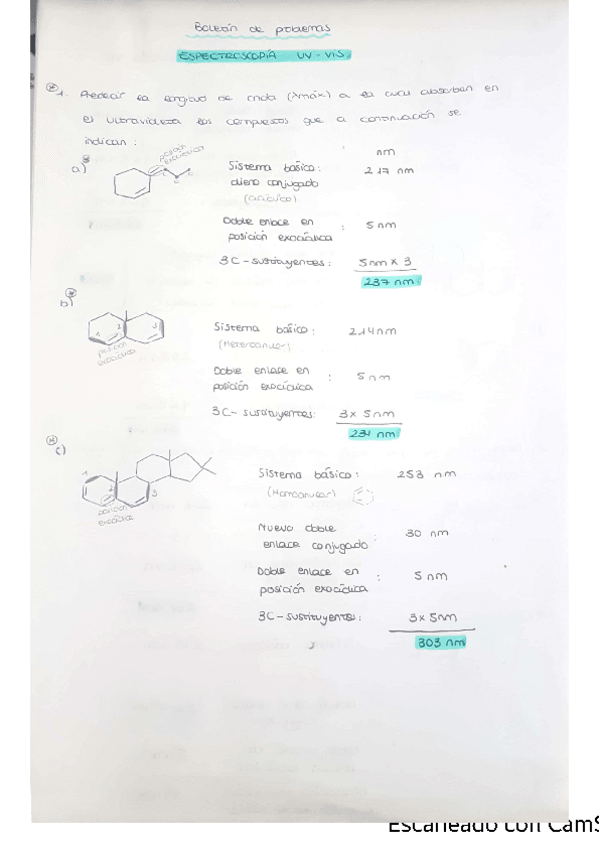 Boletín de problemas
ESPECTROSCOPÍA UV-VIS.
1. Predecir la longitud de onda (λmáx) a la cual absorben en
el ultravioleta los compuestos que a continuación se
indican:
nm
a)
posición exocíclica
Sistema básico: 217 nm
dieno conjugado
(acíclico)
Doble enlace en : 5 nm
posición exocíclica
3C-sustituyentes: 5nm x 3
237 nm
b)
1 2 3
posición exocíclica
Sistema básico: 214 nm
(Heteroanular)
Doble enlace en : 5 nm
posición exocíclica
3C-sustituyentes: 3x 5nm
234 nm
c)
1
2
3
posición exocíclica
Sistema básico: 253 nm
(Homoanular)
Nuevo doble : 30 nm
enlace conjugado
Doble enlace en : 5 nm
posición exocíclica
3C-sustituyentes: 3x 5nm
303 nm
Escaneado con CamS